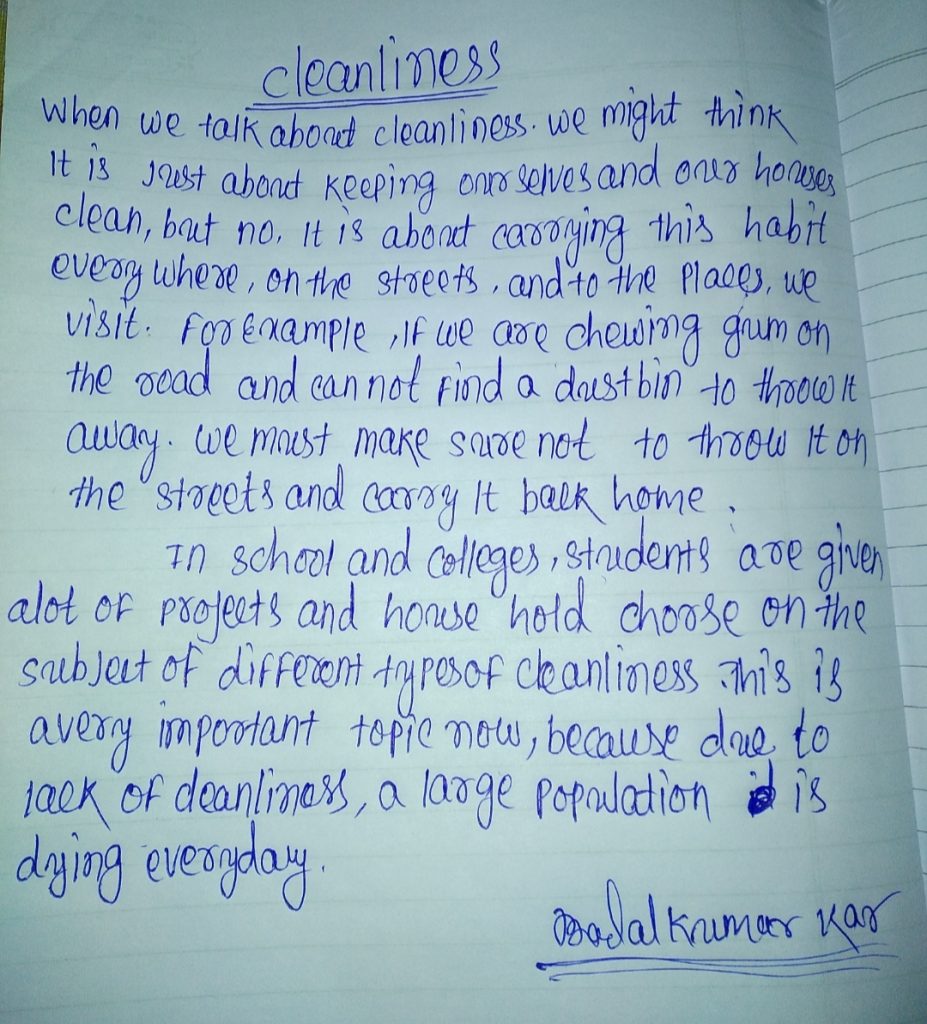 cleanliness
When we talk about cleanliness. we might think
It is Just about keeping ourselves and our houses
clean, but no. It is about carrying this habit
every where, on the streets, and to the places, we
visit. For Example, If we are chewing gum on
the road and can not Find a dustbin to throw It
away. we must make sure not to throw It on
the streets and carry It back home.
In school and colleges, students are given
alot of projects and house hold choose on the
subject of different types of cleanliness. This is
avery important topic now, because due to
lack of cleanliness, a large population is
dying everyday.
Badal Kumar Kar